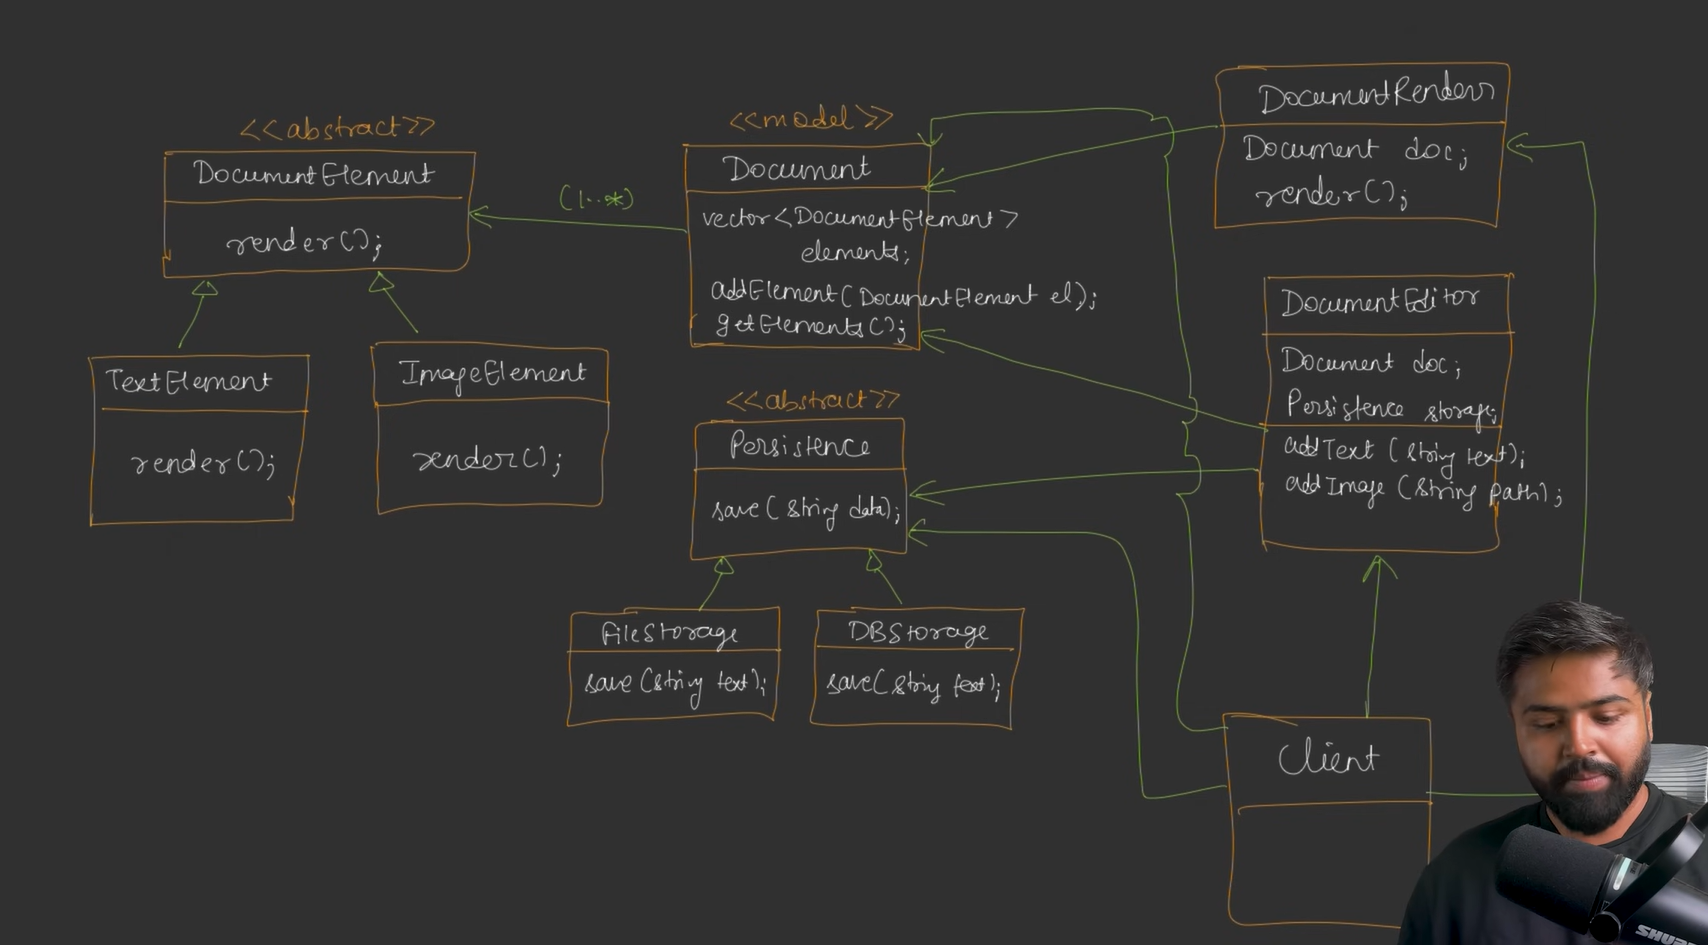 <<abstract>>
DocumentElement
render();
TextElement
render();
ImageElement
render();
(1..*)
<<model>>
Document
vector<DocumentElement>
elements;
addElement(DocumentElement el);
getElements();
<<abstract>>
Persistence
save(string data);
FileStorage
save(string text);
DBStorage
save(string text);
DocumentRenders
Document doc;
render();
DocumentEditor
Document doc;
Persistence storage;
addText (string text);
addImage (string path);
Client